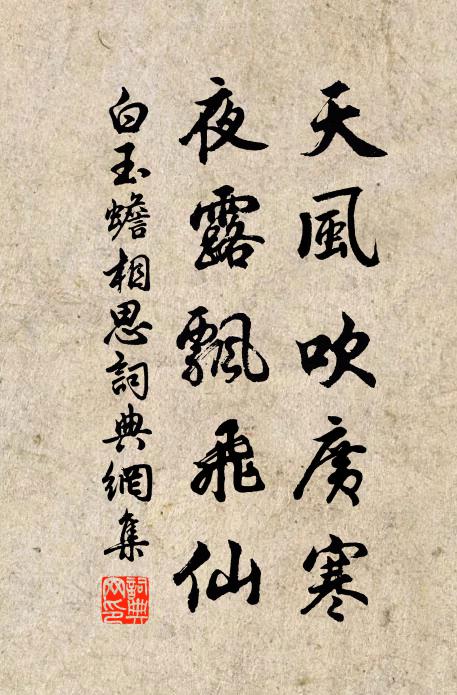 天風吹廣寒
夜露飄飛仙
白玉蟾相思詞典網集
詞典網印